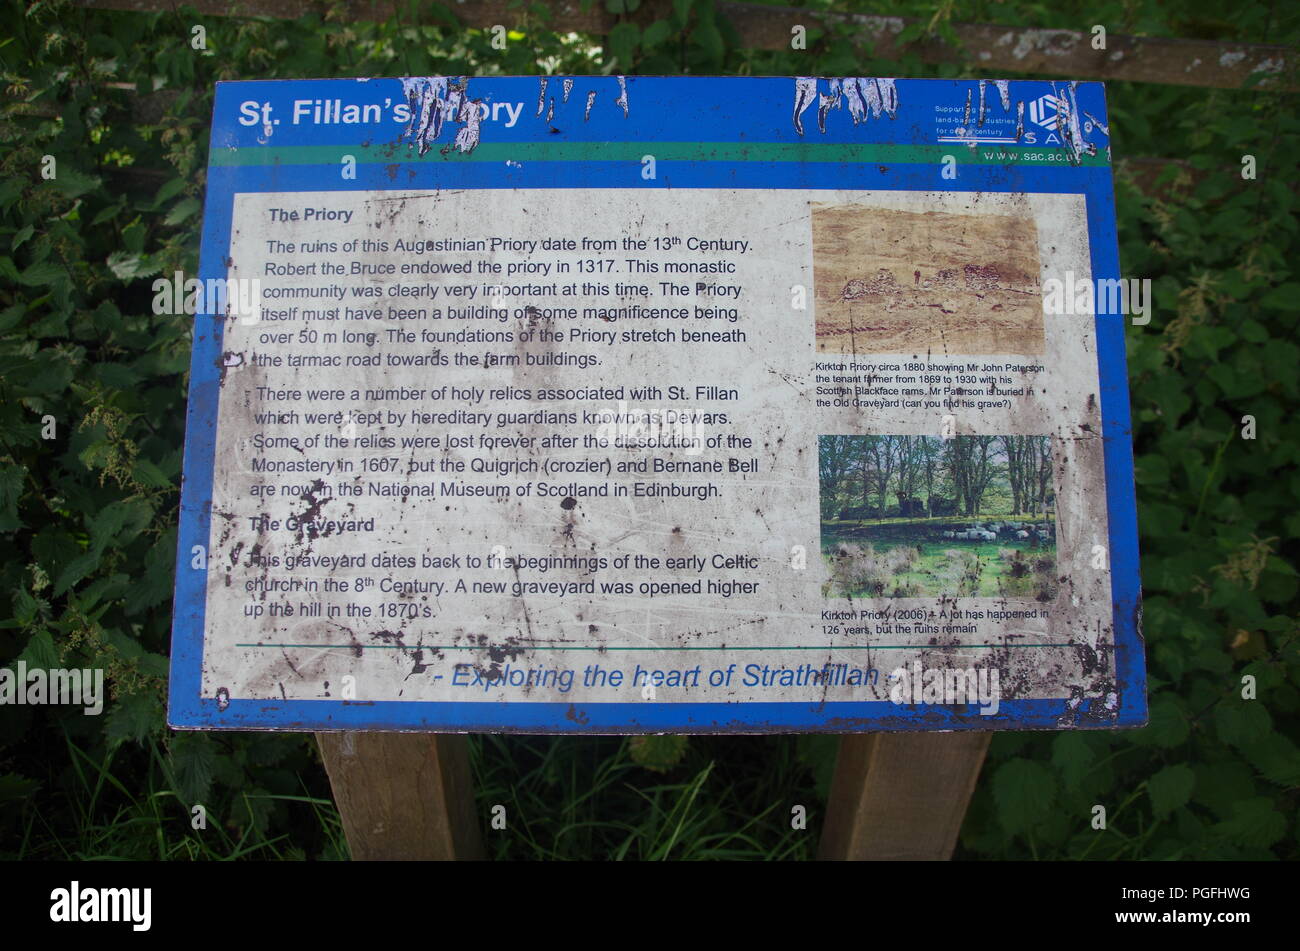 St. Fillan's Priory
Supporting the
land-based industries
for over a century
SAC
www.sac.ac.uk
The Priory
The ruins of this Augustinian Priory date from the 13th Century.
Robert the Bruce endowed the priory in 1317. This monastic
community was clearly very important at this time. The Priory
itself must have been a building of some magnificence being
over 50 m long. The foundations of the Priory stretch beneath
the tarmac road towards the farm buildings.
There were a number of holy relics associated with St. Fillan
which were kept by hereditary guardians known as Dewars.
Some of the relics were lost forever after the dissolution of the
Monastery in 1607, but the Quigrich (crozier) and Bernane Bell
are now in the National Museum of Scotland in Edinburgh.
The Graveyard
This graveyard dates back to the beginnings of the early Celtic
church in the 8th Century. A new graveyard was opened higher
up the hill in the 1870's.
Kirkton Priory circa 1880 showing Mr John Paterson
the tenant farmer from 1869 to 1930 with his
Scottish Blackface rams. Mr Paterson is buried in
the Old Graveyard (can you find his grave?)
Kirkton Priory (2006) – A lot has happened in
126 years, but the ruins remain
- Exploring the heart of Strathfillan -
alamy
Image ID: PGFHWG
www.alamy.com